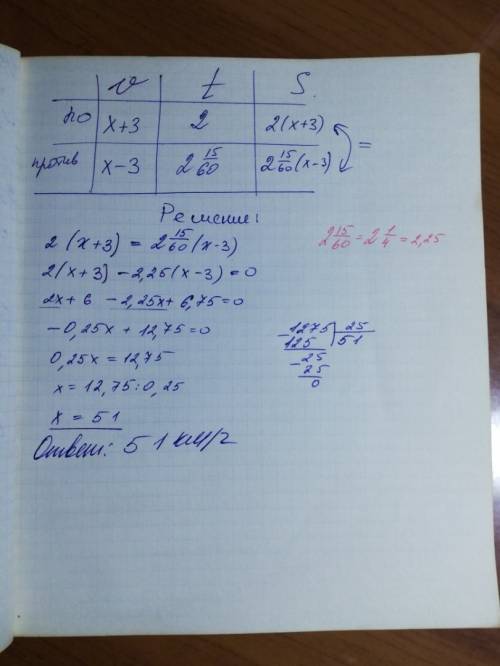 v t S.
по x+3 2 2(x+3)
против x-3 2 15/60 2 15/60 (x-3) =
Решение:
2(x+3) = 2 15/60 (x-3)
2 15/60 = 2 1/4 = 2,25
2(x+3) - 2,25(x-3) = 0
2x + 6 - 2,25x + 6,75 = 0
-0,25x + 12,75 = 0
0,25x = 12,75
x = 12,75 : 0,25
x = 51
Ответ: 51 км/ч
-1275 25
125 51
-25
25
0